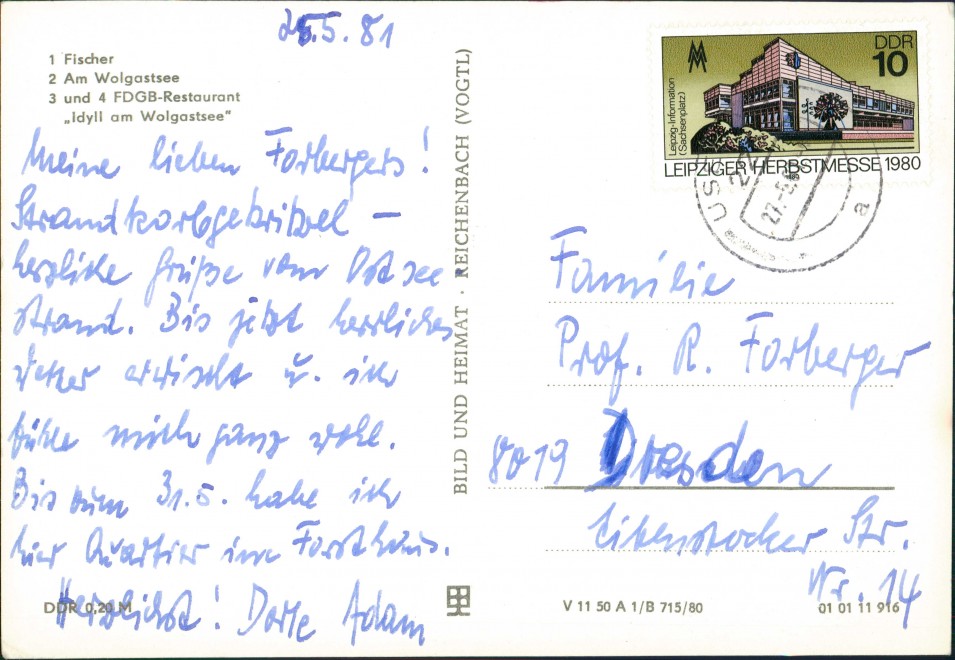 25.5.81
1 Fischer
2 Am Wolgastsee
3 und 4 FDGB-Restaurant
„Idyll am Wolgastsee"
Meine lieben Forbergers!
Strandkorbgekritzel –
herzliche Grüße vom Ostsee
strand. Bis jetzt herrliches
Wetter erwischt u. ich
fühle mich ganz wohl.
Bis zum 31.5. habe ich
hier Quartier im Forsthaus.
Herzlichst! Dorle Adam
DDR 0,20 M
BILD UND HEIMAT · REICHENBACH (VOGTL)
DDR
10
Leipzig-Information
(Sachsenplatz)
LEIPZIGER HERBSTMESSE 1980
US
22
27.-5.
a
Familie
Prof. R. Forberger
8019 Dresden
Eibenstocker Str.
Nr. 14
V 11 50 A 1/B 715/80
01 01 11 916